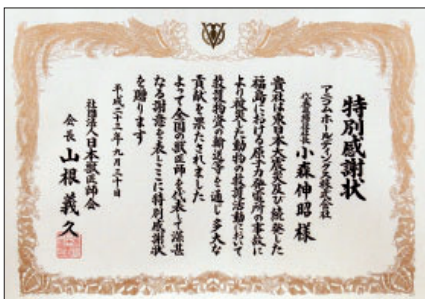 特別感謝状
アニコムホールディングス株式会社
代表取締役社長 小森伸昭 様
貴社は東日本大震災及び続発した
福島における原子力発電所の事故に
より被災した動物の救護活動において
救援物資の輸送等を通じ多大な
貢献を果たされました
よって全国の獣医師を代表して深甚
なる謝意を表しここに特別感謝状
を贈ります
平成二十三年九月三十日
社団法人日本獣医師会
会長 山根義久